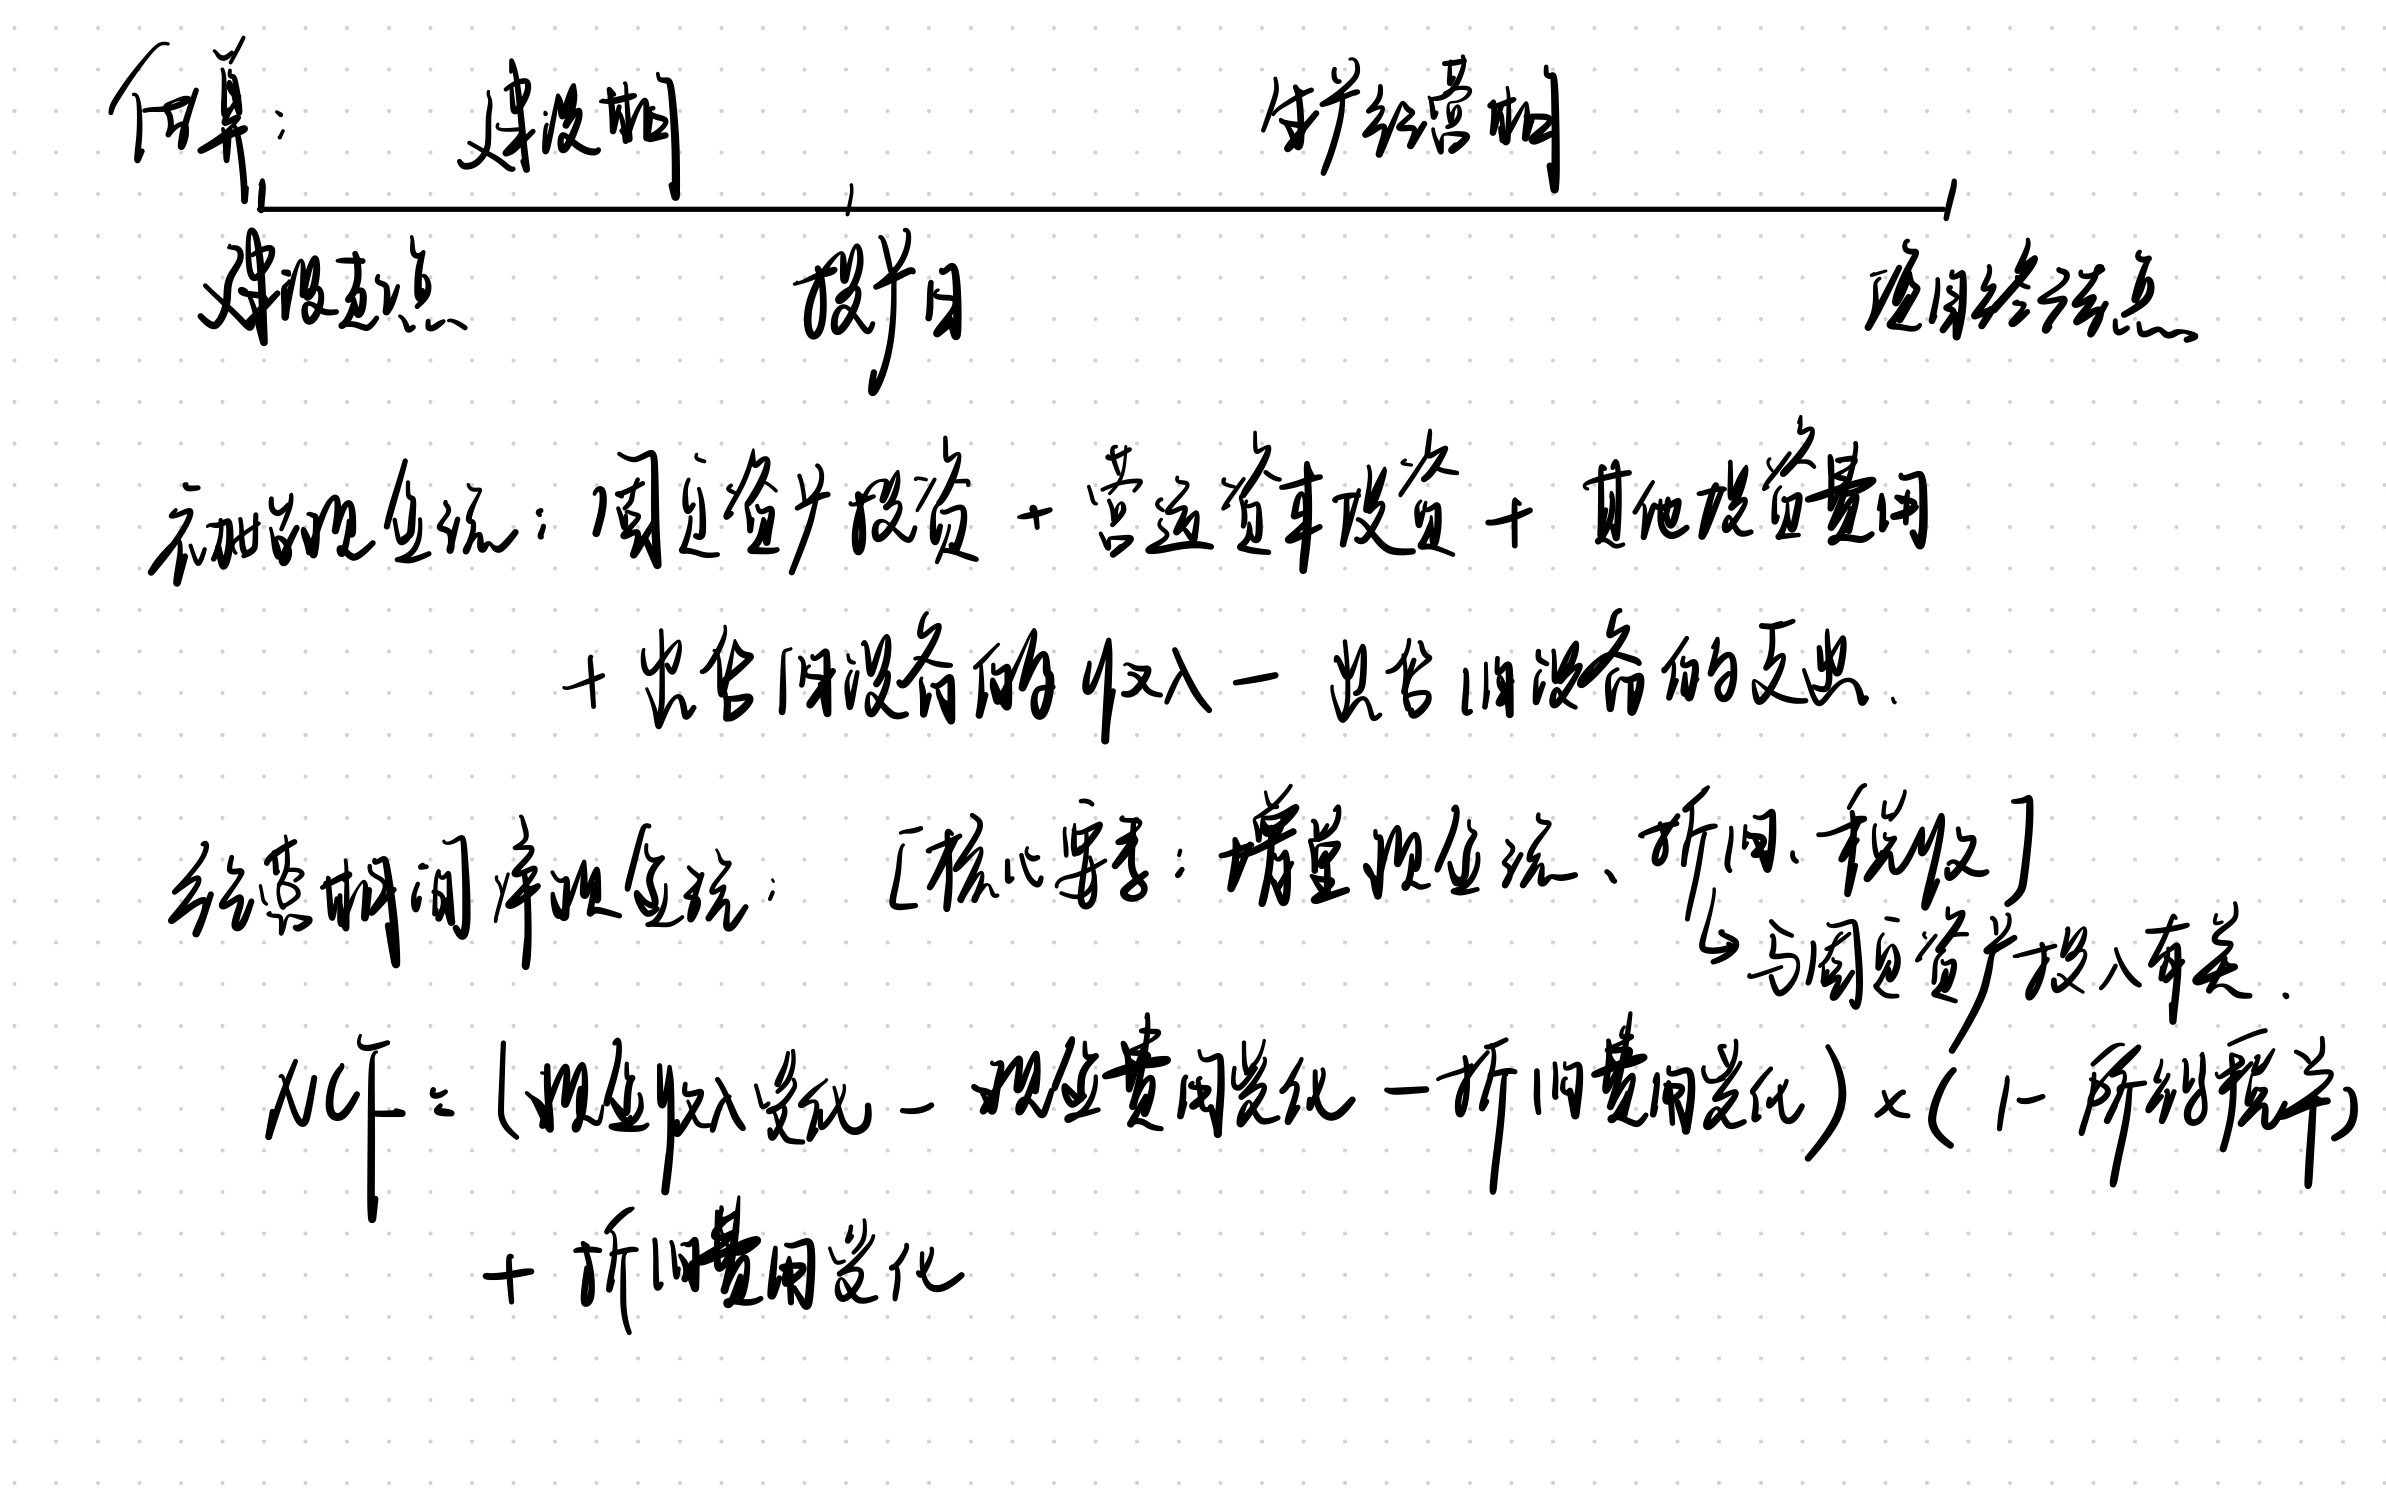 估算：
建设期
生产经营期
建设起点
投产日
项目终结点
初始现金流：固定资产投资 + 营运资本投资 + 其他投资费用
+ 出售旧设备的收入 - 出售旧设备的
经营期间净现金流：[核心要素：增量现金流、折旧、税收]
↳ 与固定资产投入有关.
NCF = (现金收入变化 - 现金费用变化 - 折旧费用变化) × (1 - 所得税率)
+ 折旧费用变化